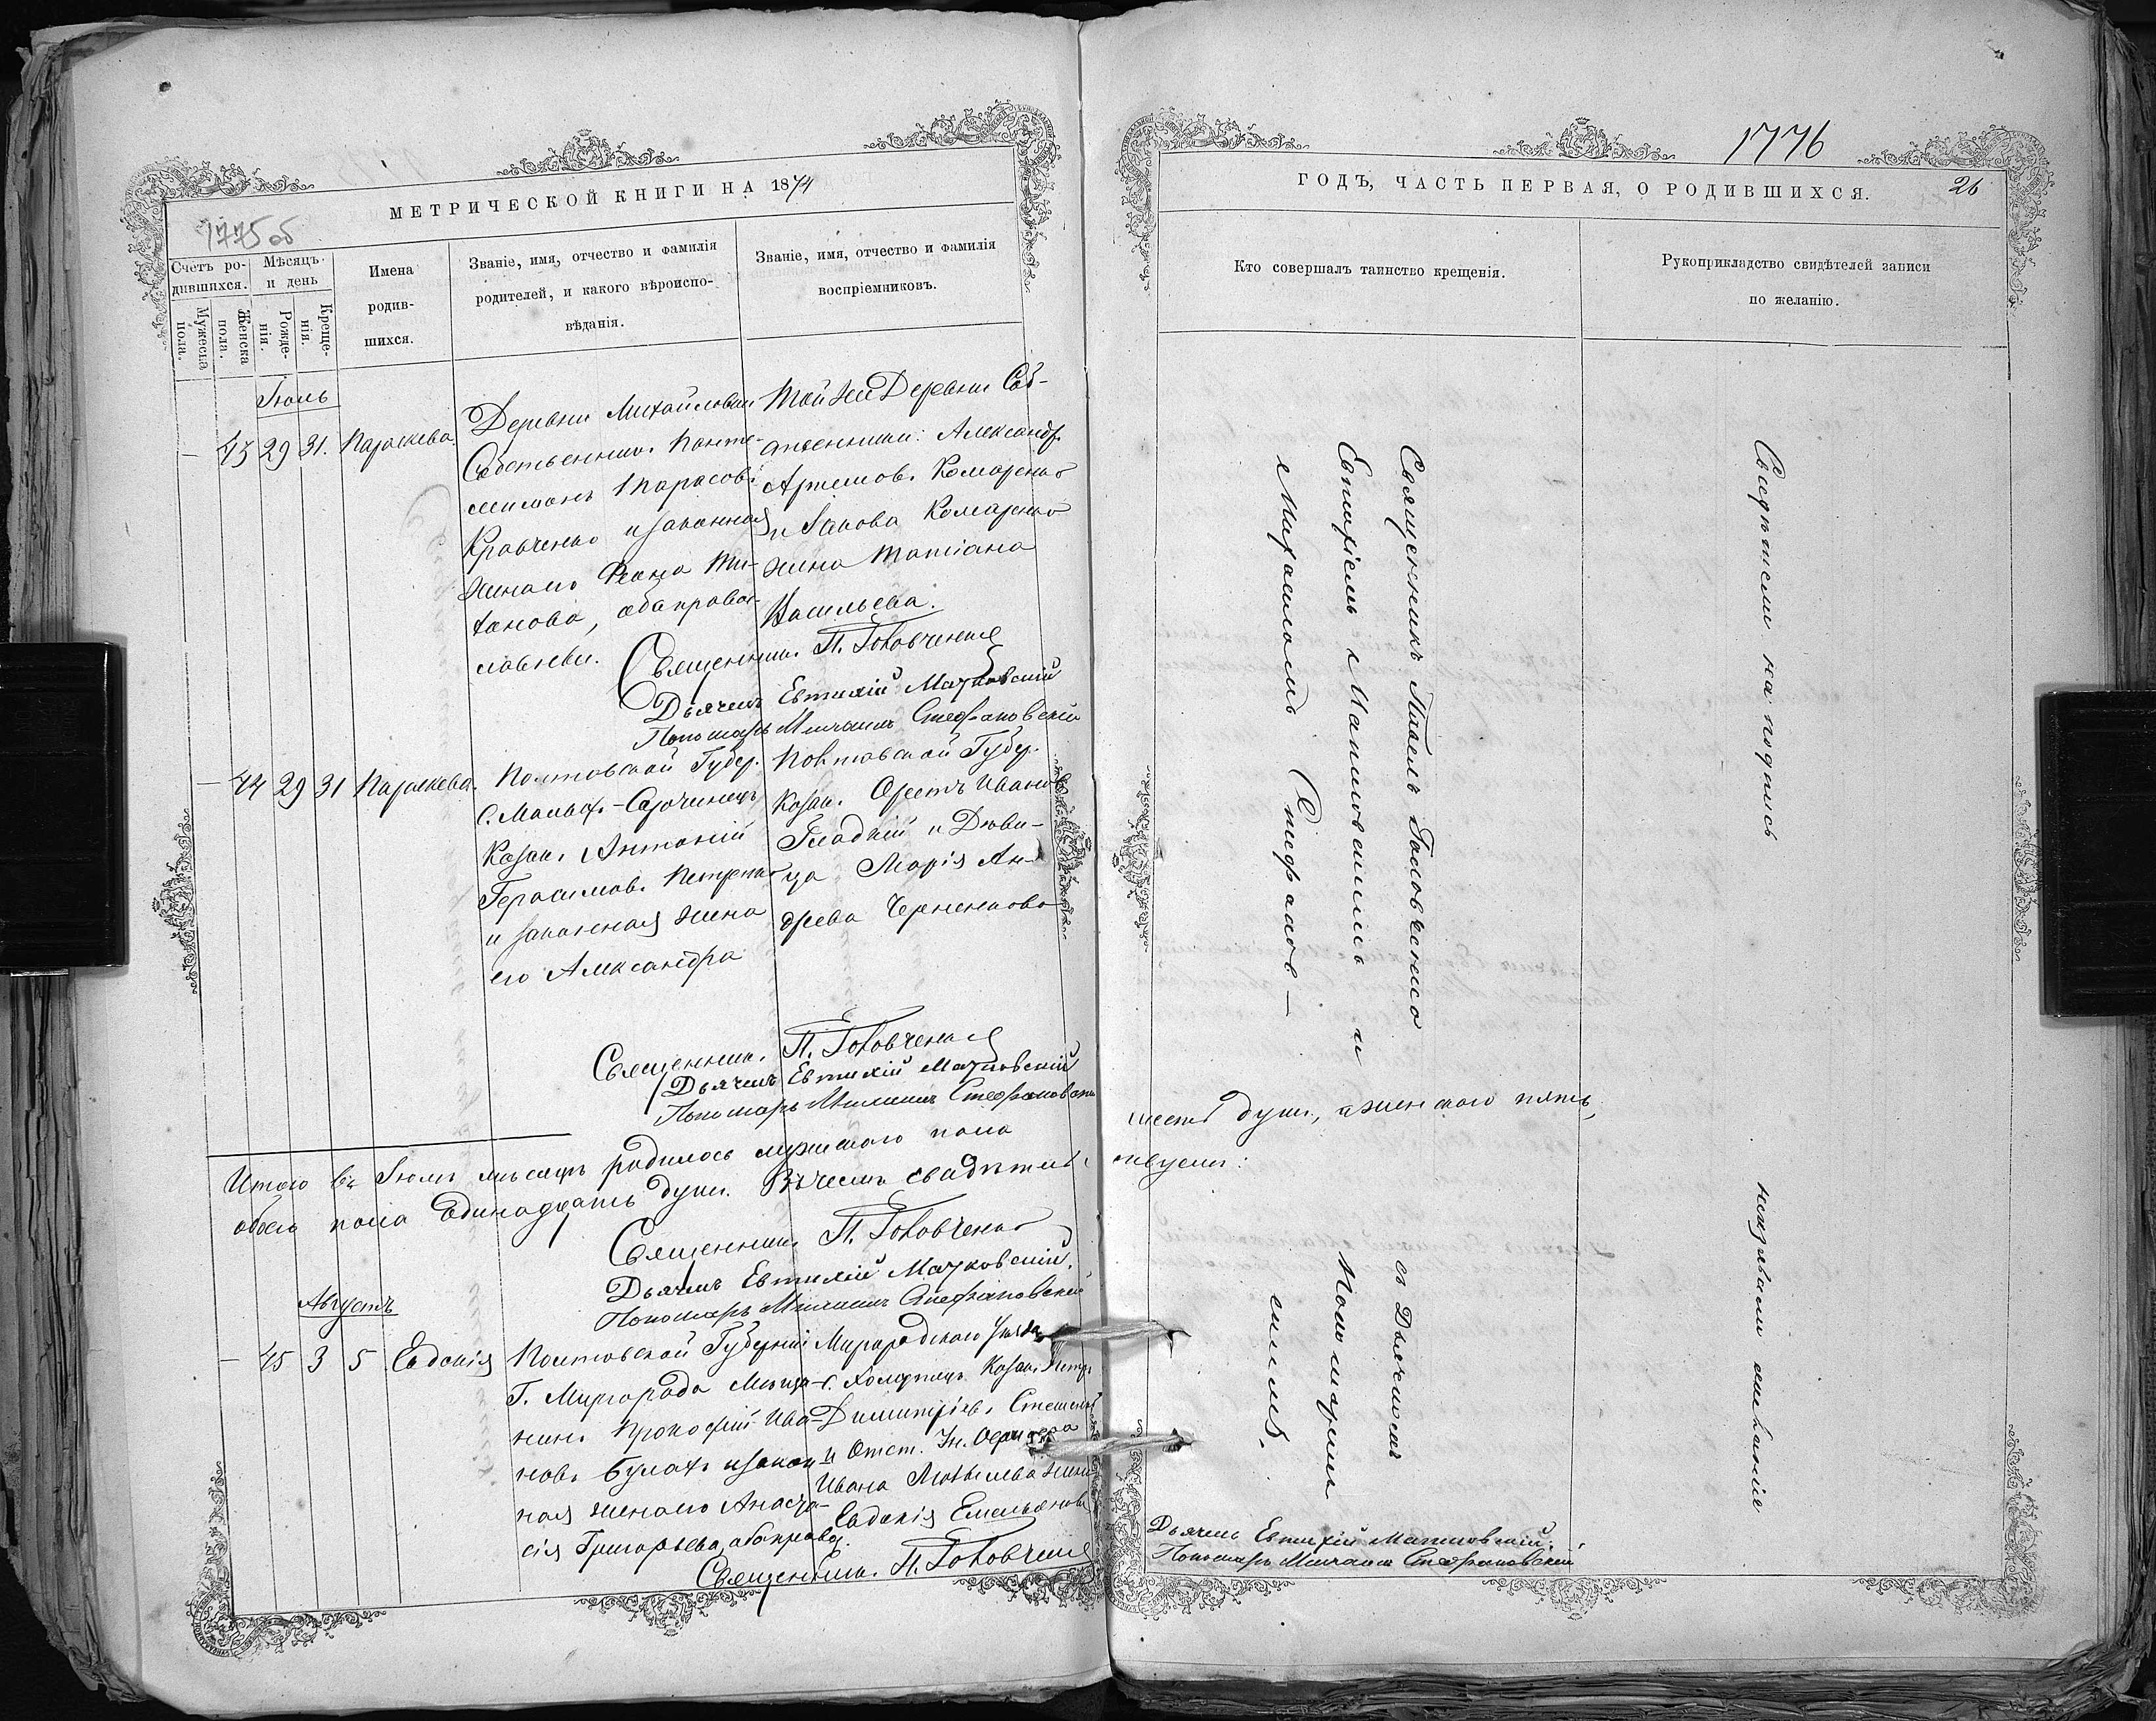 МЕТРИЧЕСКОЙ КНИГИ НА 1874
1775 об
Счетъ ро-
дившихся.
Мужеска
пола.
Женска
пола.
Мѣсяцъ
и день
Рожде-
нія.
Креще-
нія.
Имена
родив-
шихся.
Званіе, имя, отчество и фамилія
родителей, и какого вѣроиспо-
вѣданія.
Званіе, имя, отчество и фамилія
воспріемниковъ.
Іюль
43 29 31. Параскева
Деревни Михайловки
Собственник. Панте-
леимонъ Тарасов.
Кравченко и законная
жена его
православ-
ной же Деревни Соб-
ственники: Александр.
Артемов. Комаренко
и Іакова Комаренко
жена Татіана
Васильева.
Священник. П. Головченко
Дьячекъ Евтихій Мацковскій
Пономарь Михаилъ Стефановскій
44 29 31 Параскева.
Полтовской Губер.
Сорочинецъ
Козак. Антоній
Герасимов. Петренко
и законная жена
его Александра
Полтовской Губер.
Козак. Орестъ Иванов
Гладкій и Дѣви-
ца Марія Ан-
дреева Черненкова
Священник. П. Головченко
Дьячекъ Евтихій Мацковскій
Пономарь Михаилъ Стефановскій
Итого въ Іюлѣ мѣсяцѣ родилось мужескаго пола
обоего пола Единадцать душ. Въ чемъ свидѣтель-
Священник. П. Головченко
Дьячекъ Евтихій Мацковскій.
Пономарь Михаилъ Стефановскій
Августъ
45 3 5 Евдокія
Полтовской Губерніи
Г. Миргорода Мѣща-
нин. Прокофій Ива-
нов. Булах. и закон-
ная жена его Анаста-
сія Григорьева, оба правосл.
Миргородскаго Уѣзда
Козак. Петр.
Димитріев.
и Отст. Ун. Офицера
Ивана жена
Евдокія Емельянова
Священник. П. Головченко
1776
ГОДЪ, ЧАСТЬ ПЕРВАЯ, О РОДИВШИХСЯ.
26
Кто совершалъ таинство крещенія.
Рукоприкладство свидѣтелей записи
по желанію.
Священникъ Павелъ Головченко съ Дьячкомъ
Евтихіемъ Мацковскимъ и Пономаремъ
Михаиломъ Стефановскимъ.
Свидѣтели на подпись
шесть душ., а женскаго пять,
ствуем:
Дьячекъ Евтихій Мацковскій.
Пономарь Михаилъ Стефановскій